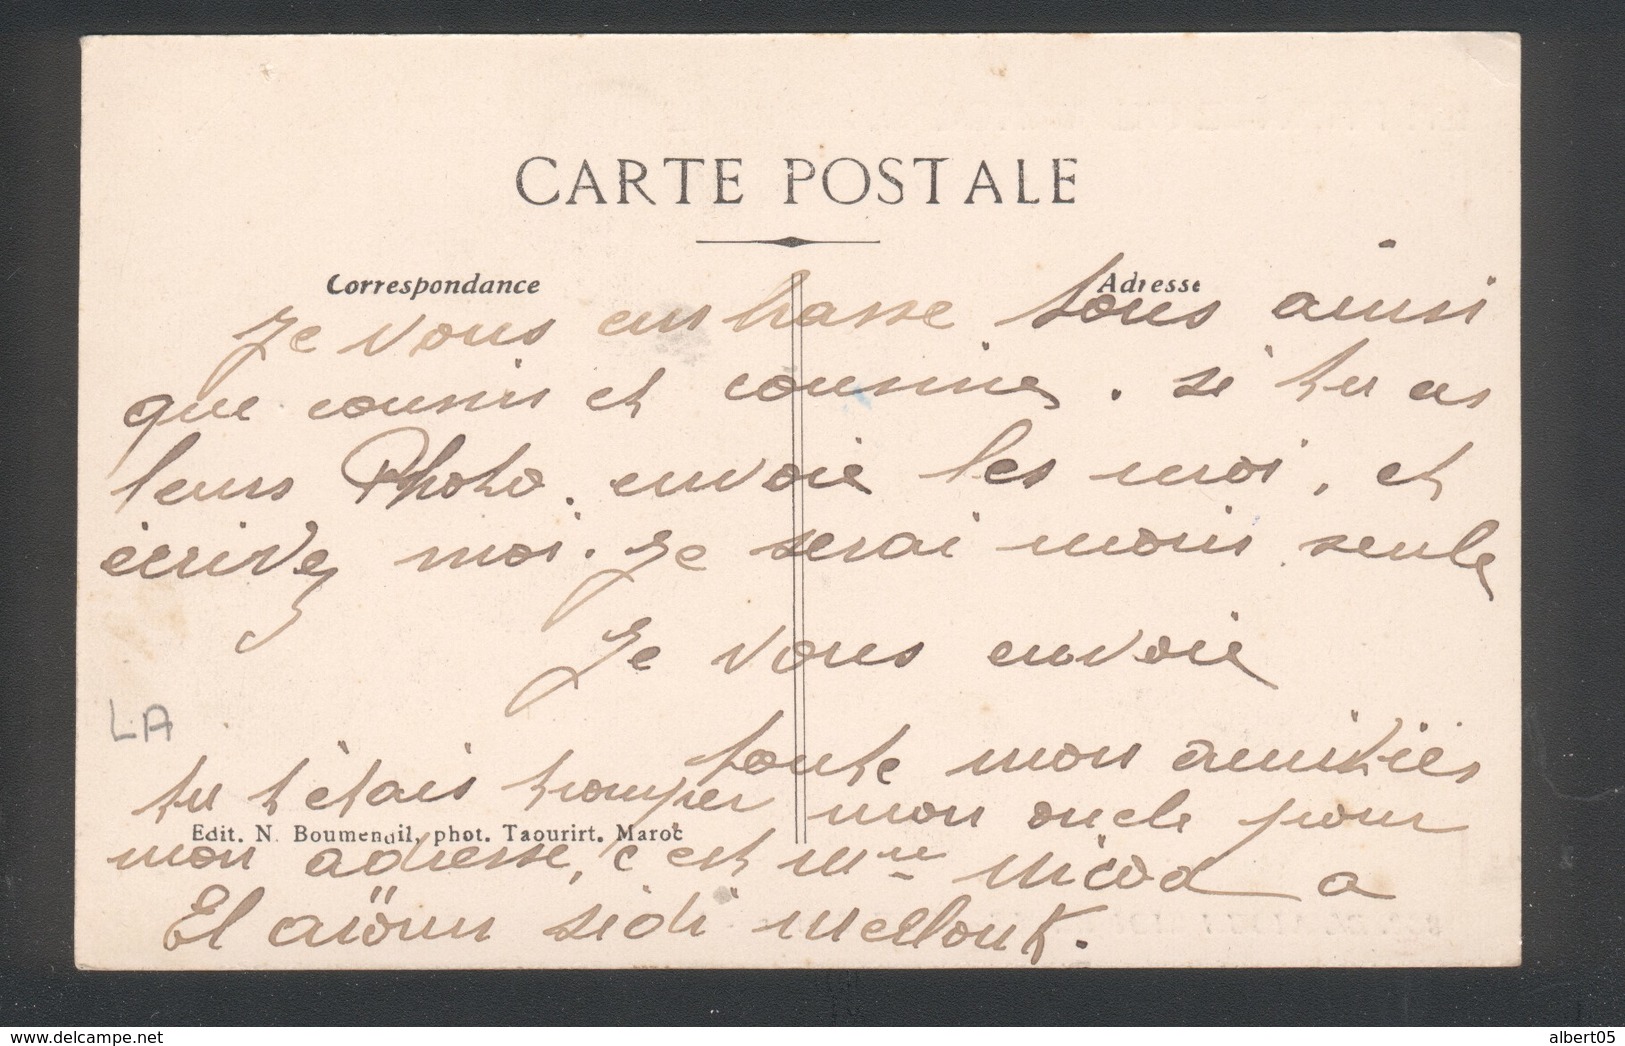 CARTE POSTALE
Correspondance
Adresse
Je vous embrasse tous ainsi
que cousins et cousine. si tu as
leurs Photo. envoie les moi, et
écrivez moi. Je serai moins seule
Je vous envoie
toute mon amitiés
LA
tu t'étais tromper mon oncle pour
Edit. N. Boumendil, phot. Taourirt. Maroc
mon adresse, c'est Mme a
El aïoun sidi Mellouk.
delcampe.net
albert05